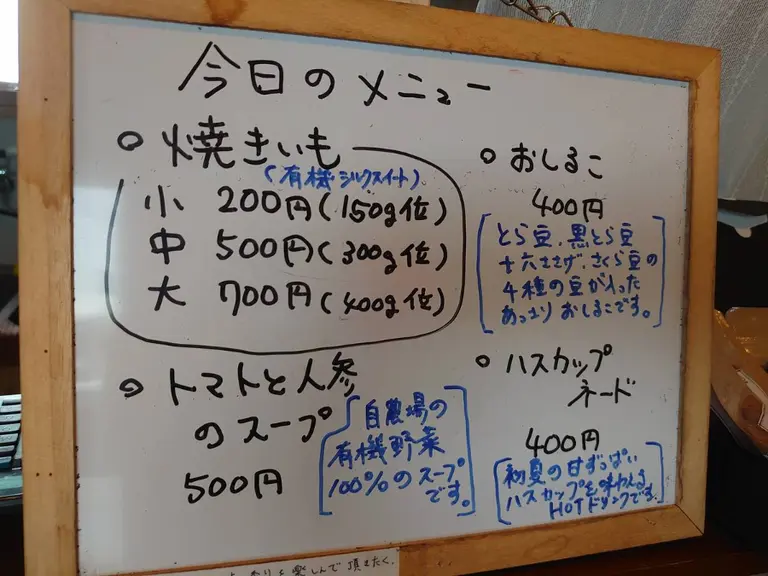 今日のメニュー
○ 焼きいも
(有機シルクスイート)
小 200円(150g位)
中 500円(300g位)
大 700円(400g位)
○ トマトと人参
のスープ
500円
自農場の
有機野菜
100%のスープ
です。
○ おしるこ
400円
とら豆、黒とら豆
十六ささげ、さくら豆の
4種の豆が入った
あっさり おしるこです。
○ ハスカップ
ネード
400円
初夏の甘ずっぱい
ハスカップを味わえる
HOTドリンクです。
楽しんで頂きたく、